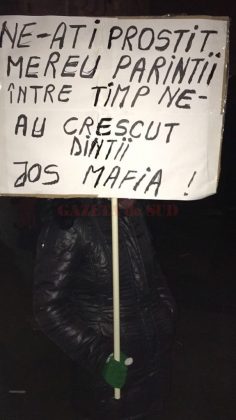 NE-ATI PROSTIT
MEREU PARINTII
ÎNTRE TIMP NE-
AU CRESCUT
DINTII
JOS MAFIA !
GAZETA de SUD